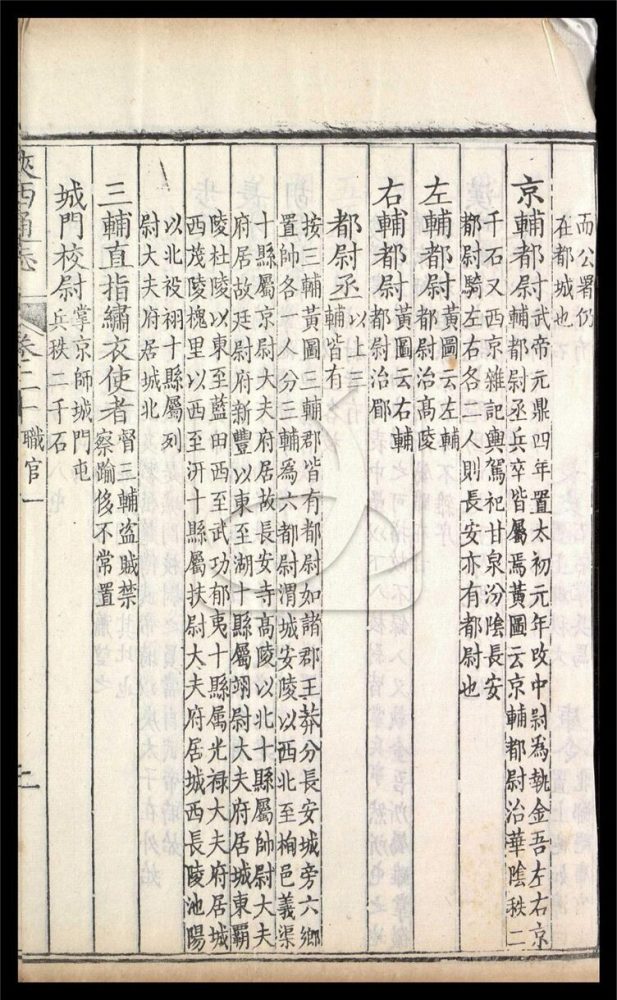 而公署仍
在都城也
京輔都尉武帝元鼎四年置太初元年改中尉為執金吾左右京
輔都尉丞兵卒皆屬焉黃圖云京輔都尉治華陰秩二
千石又西京雜記輿駕祀甘泉汾陰長安
都尉騎左右各一人則長安亦有都尉也
左輔都尉黃圖云左輔
都尉治高陵
右輔都尉黃圖云右輔
都尉治郿
都尉丞以上三
輔皆有
按三輔黃圖三輔郡皆有都尉如諸郡王莽分長安城旁六鄉
置帥各一人分三輔為六都尉渭城安陵以西北至栒邑義渠
十縣屬京尉大夫府居故長安寺高陵以北十縣屬師尉大夫
府居故廷尉府新豐以東至湖十縣屬翊尉大夫府居城東霸
陵杜陵以東至藍田西至武功郁夷十縣属光祿大夫府居城
西茂陵槐里以西至汧十縣屬扶尉大夫府居城西長陵池陽
以北祋祤十縣屬列
尉大夫府居城北
三輔直指繡衣使者督三輔盗賊禁
察踰侈不常置
城門校尉掌京師城門屯
兵秩二千石
陝西通志 卷二十 職官一